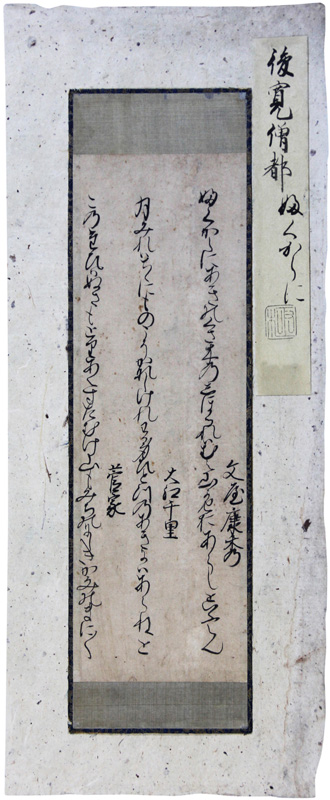 俊寛僧都 ふくからに
文屋康秀
ふくからにあきのくさ木のしほるれはむへ山かせをあらしといふらん
大江千里
月みれはちゝにものこそかなしけれわか身ひとつのあきにはあらねと
菅家
このたひはぬさもとりあへすたむけ山もみちのにしきかみのまに〱